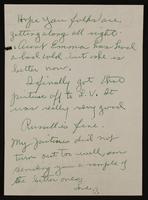 Hope you folks are
getting along all right.
Aunt Emma has had
a bad cold but she is
better now.
I finally got that
picture off to S.V. It
was really very good
Russell is fine.
My pictures did not
turn out too well, am
sending you a couple of
the better ones,